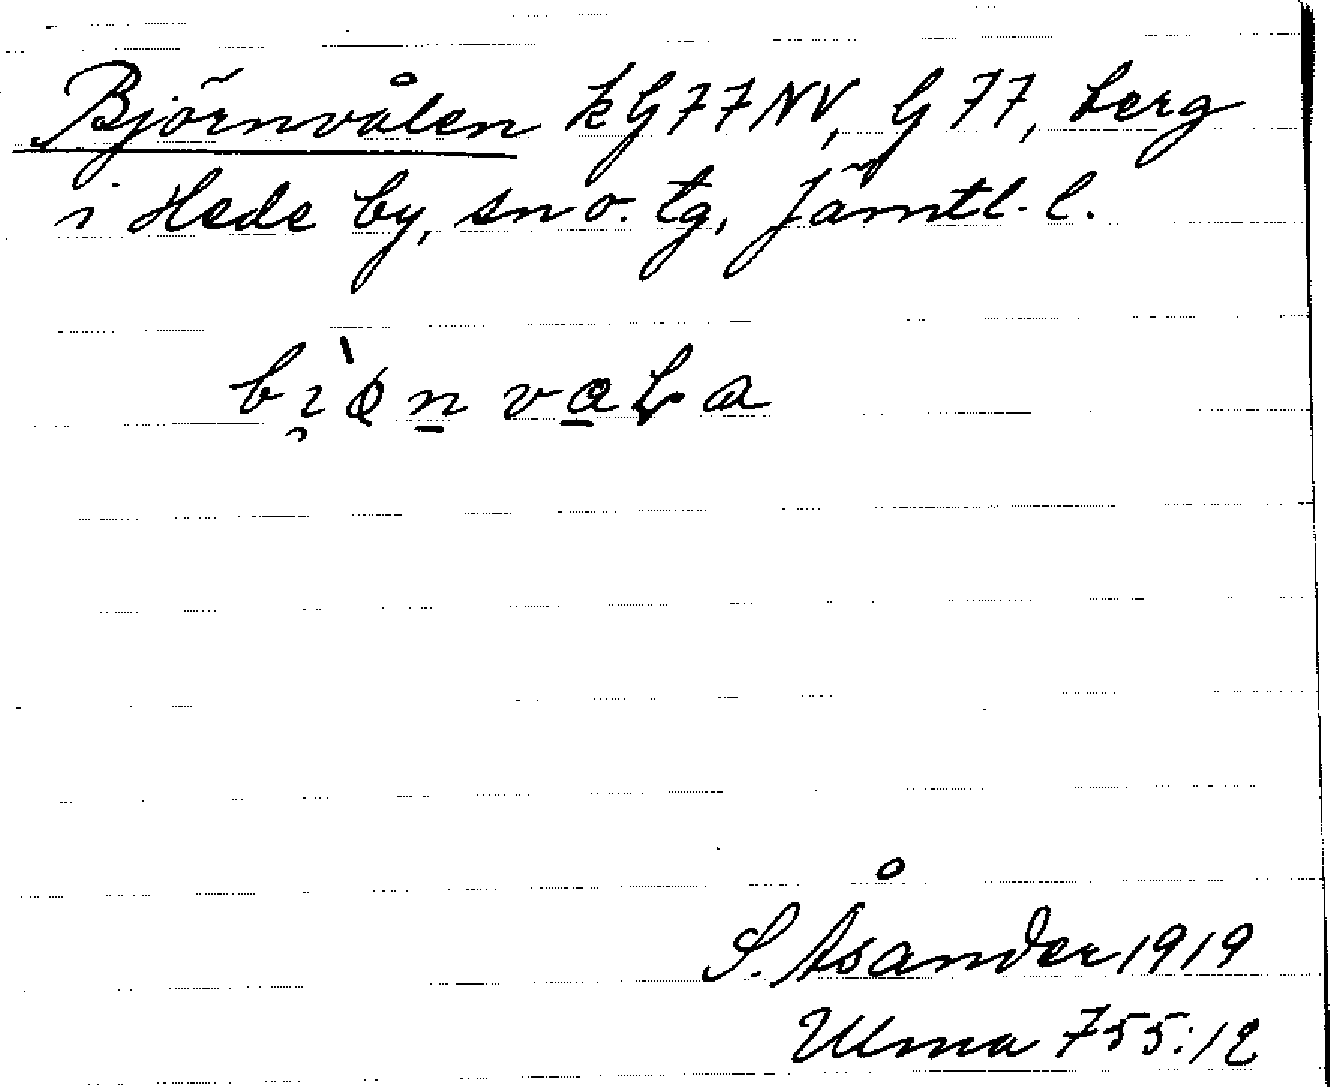 Björnvålen kG77NV, G77, berg
i Hede by, sn o. tg, Jämtl. l.
S. Åsander 1919
Ulma 755:12